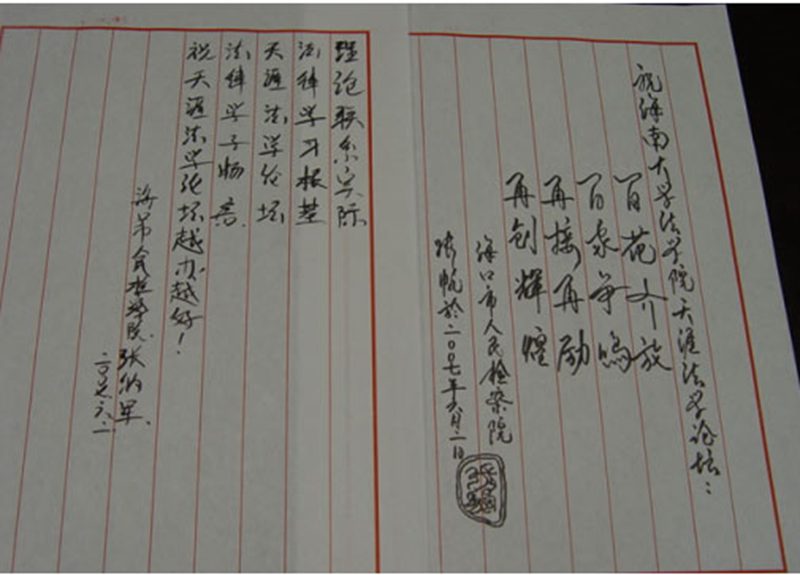 祝海南大学法学院天涯法学论坛：
百花齐放
百家争鸣
再接再励
再创辉煌
海口市人民检察院
张帆於二〇〇七年六月二日
理论联系实际
法律学习根基
天涯法学论坛
法律学子畅言
祝天涯法学论坛越办越好！
海口市人民检察院
二〇〇七.六.二